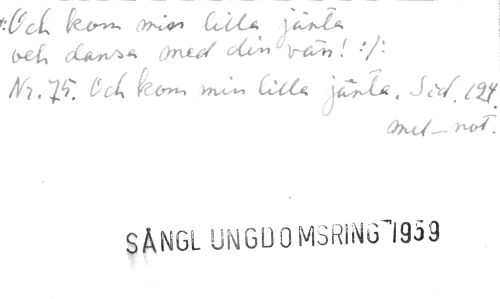 :/: Och kom min lilla jänta
och dansa med din vän! :/:
Nr. 75. Och kom min lilla jänta. Sid. 124.
mel-not.
SÅNGL UNGDOMSRING 1959